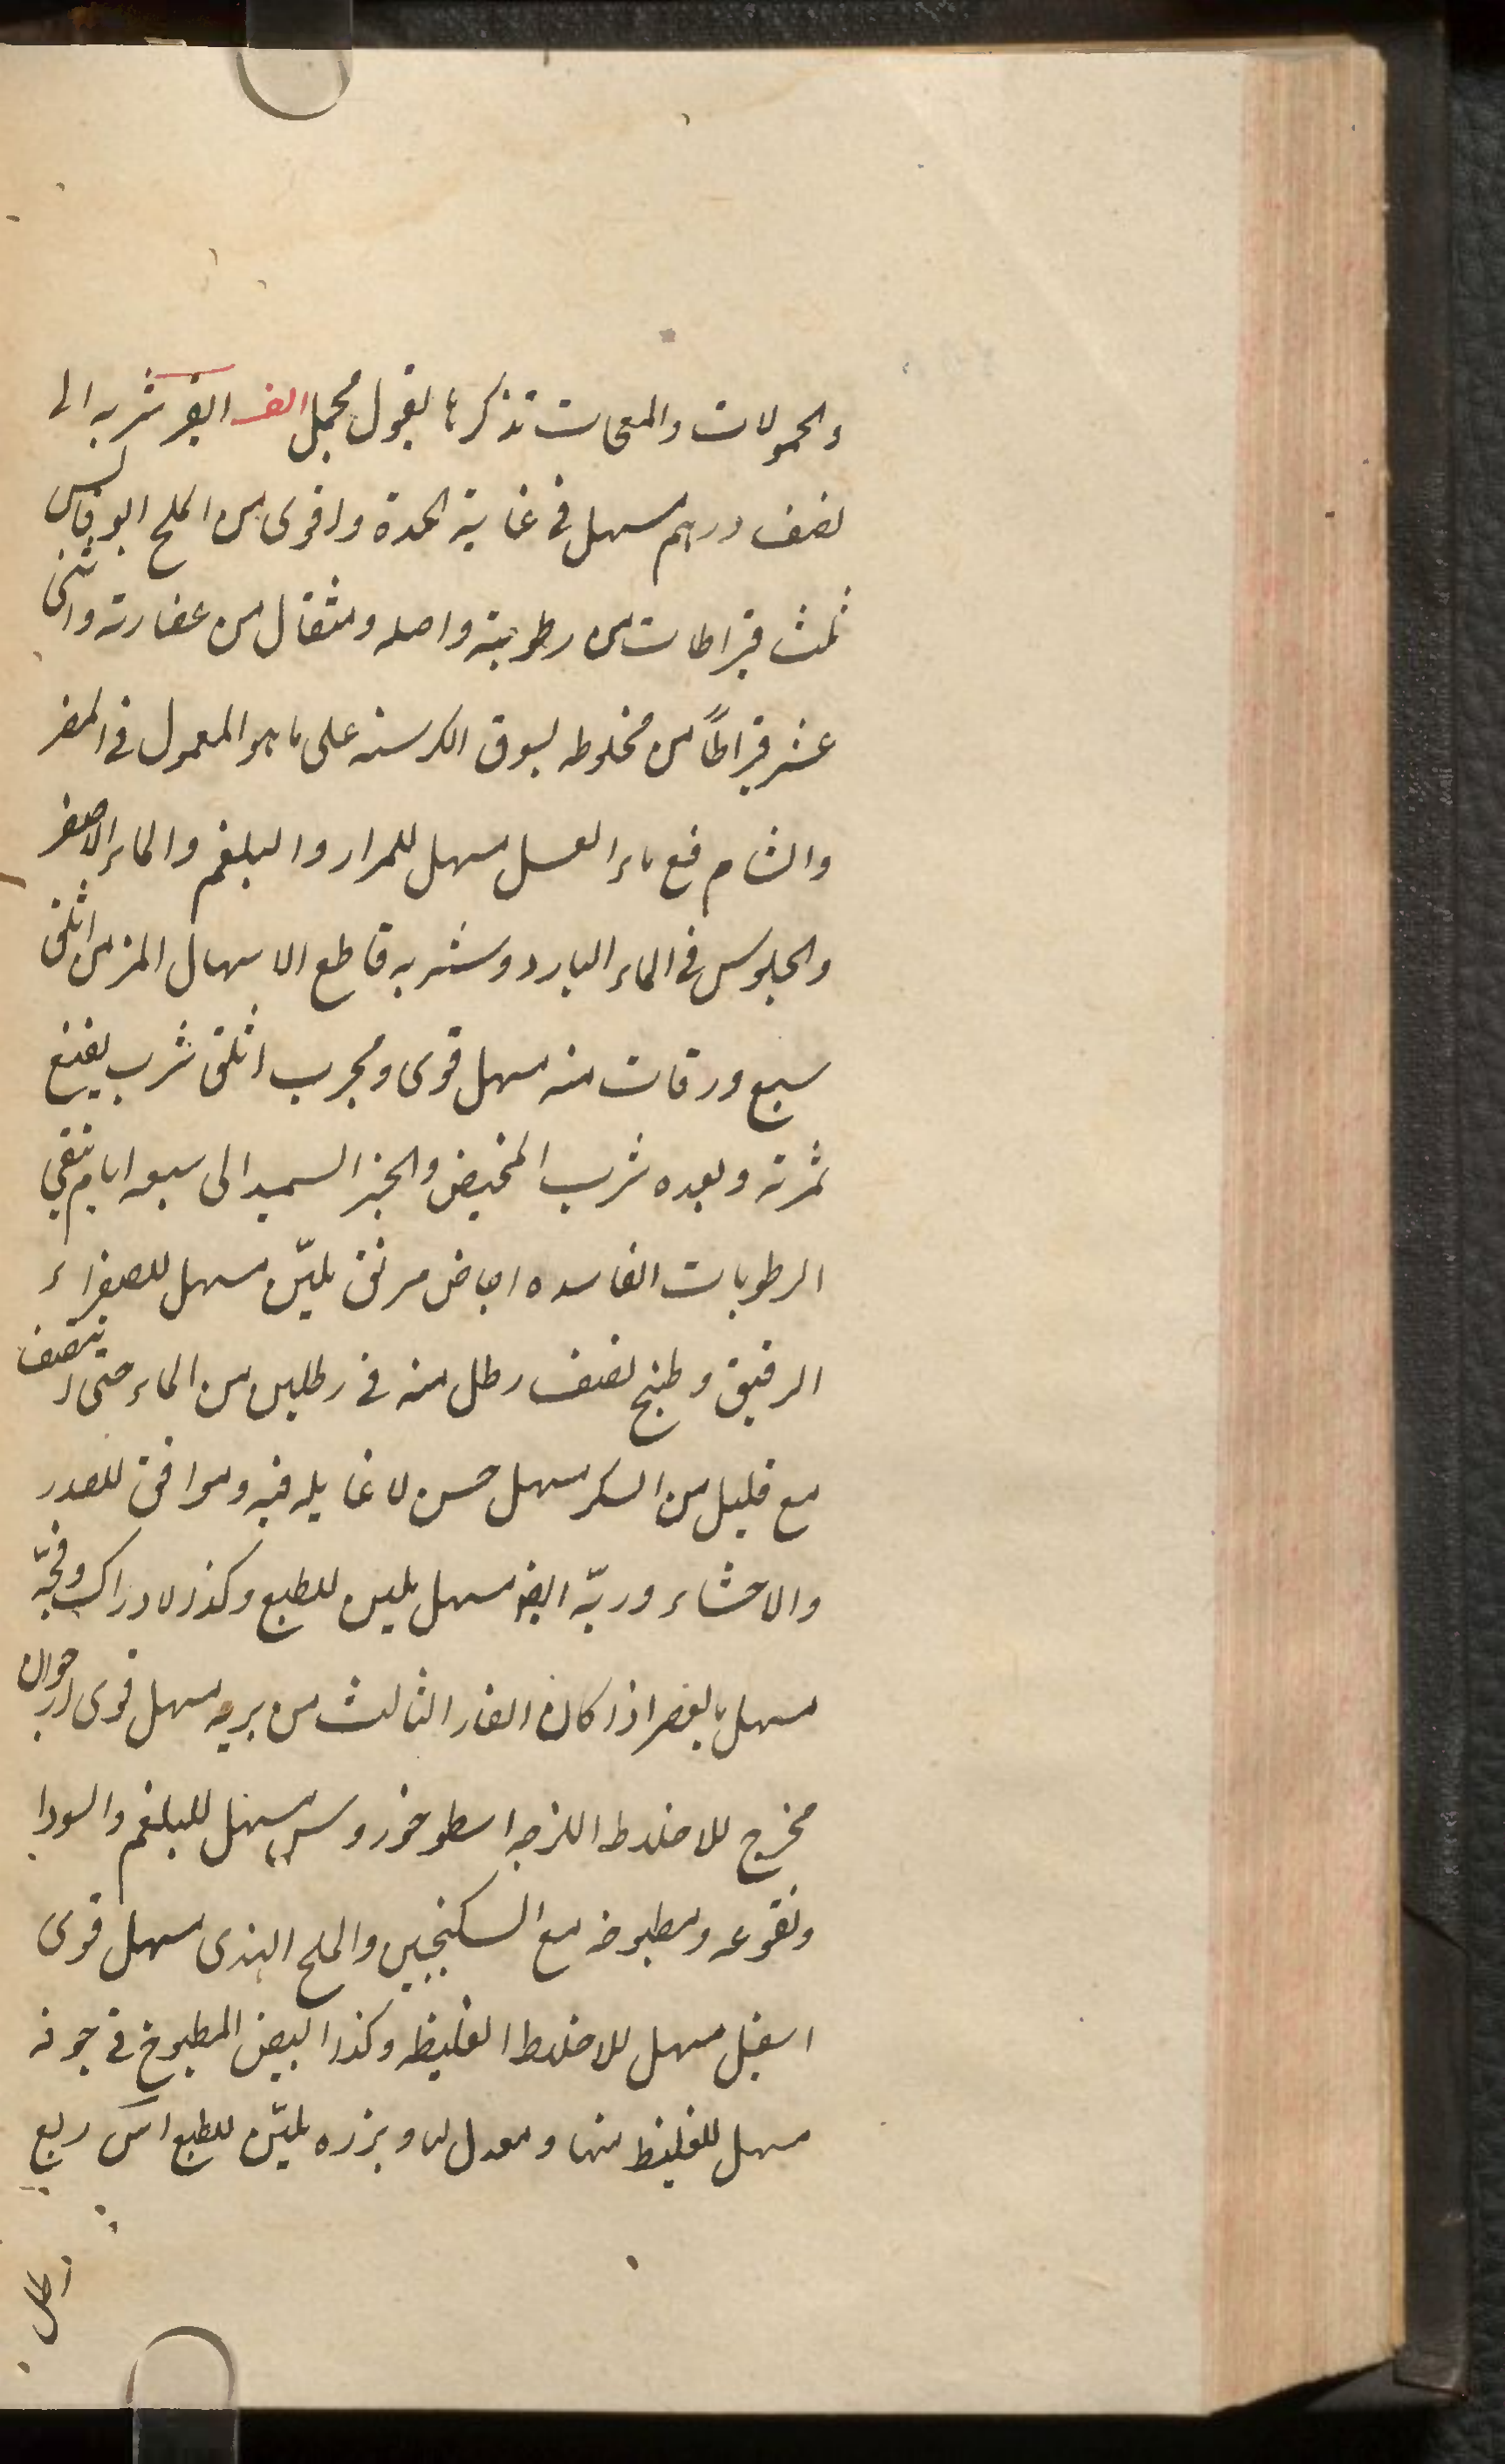 والحمولات والمعى ت تذكرها بقول مجمل الف ابقر شربه الى
نصف درهم مسهل فى غاية الحدة واقوى من الملح ابوقالس
ثلث قيراطات من رطوبته واصله ومثقال من عصارته واثنى
عشر قيراطاً من مخلوطه بسوق الكرسنه على ما هو المعمول فى المصر
والشام مع ماء العسل مسهل للمرار والبلغم والماء الاصفر
والجلوس فى الماء البارد وشربه قاطع الاسهال المزمن اثلق
سبع ورقات منه مسهل قوى ومجرب اثلق شرب
ثمرته وبعده شرب المخيض والخبز السميد الى سبعه ايام تنقي
الرطوبات الفاسده اجاص مرلق مليّن مسهل للصفراء
الرقيق وطبخ نصف رطل منه فى رطلين من الماء حتى ينتصف
مع قليل من السكر مسهل حسن لا غايله فيه وموافق للصدر
والاحشاء وربّه ايضا مسهل ملين للطبع وكذا لادراك وفجّه
مسهل بالعصر اذا كان الغار الثالث من بريه مسهل قوى ارجوان
مخرج للاخلاط اللزجه اسطوخودوس مسهل للبلغم والسودا
ونقوعه ومطبوخه مع السكنجبين والملح الهندى مسهل قوى
اسقيل مسهل للاخلاط الغليظه وكذا البيض المطبوخ فى جوفه
مسهل للغليظ منها ومعدل لها وبزره مليّن للطبع اس ربع
رطل